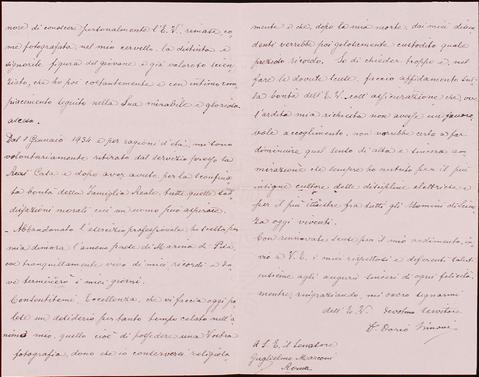 nore di conoscer personalmente l'E.V., rimase, co
me fotografata, nel mio cervello la distinta e
signorile figura del giovane e già valoroso scien
ziato, che ho poi costantemente e con intimo com
piacimento seguito nella Sua mirabile e gloriosa
ascesa.
Dal 1 Gennaio 1934 e per ragioni d'età, mi sono
volontariamente ritirato dal servizio presso la
Real Casa e dopo aver avuto per la
bontà della Famiglia Reale, tutte quelle sod
disfazioni morali cui un uomo può aspirare.
- Abbandonato l'esercizio professionale, ho scelto per
mia dimora l'ameno paese di Marina di Pisa,
ove tranquillamente vivo di miei ricordi e do
ve terminerò i miei giorni.
Consentitemi, Eccellenza, che vi faccia oggi pa
lese un desiderio per tanto tempo celato nell'a
nimo mio, quello cioè di possedere una Vostra
fotografia, dono che io conserverò religiosa
mente e che, dopo la mia morte, dai miei discen
denti verrebbe poi gelosamente custodito quale
prezioso ricordo. So di chieder troppo e nel
fare le dovute scuse, faccio affidamento sul
la bontà dell'E.V. coll'assicurazione che, ove
l'ardita mia richiesta non avesse un favore
vole accoglimento, non varrebbe certo a far
diminuire quel senso di alta e sincera am
mirazione che sempre ho nutrito per il più
insigne cultore delle discipline elettriche e
per il più illustre fra tutti gli Uomini di Scien
za oggi viventi.
Con rinnovate scuse per il mio ardimento, in
vio a V.E. i miei rispettosi e deferenti saluti
unitamente agli auguri sinceri di ogni felicità
mentre, ringraziando, mi onoro segnarmi
dell'E.V. devotmo servitore
Dario
A S.E. il Senatore
Guglielmo Marconi
Roma